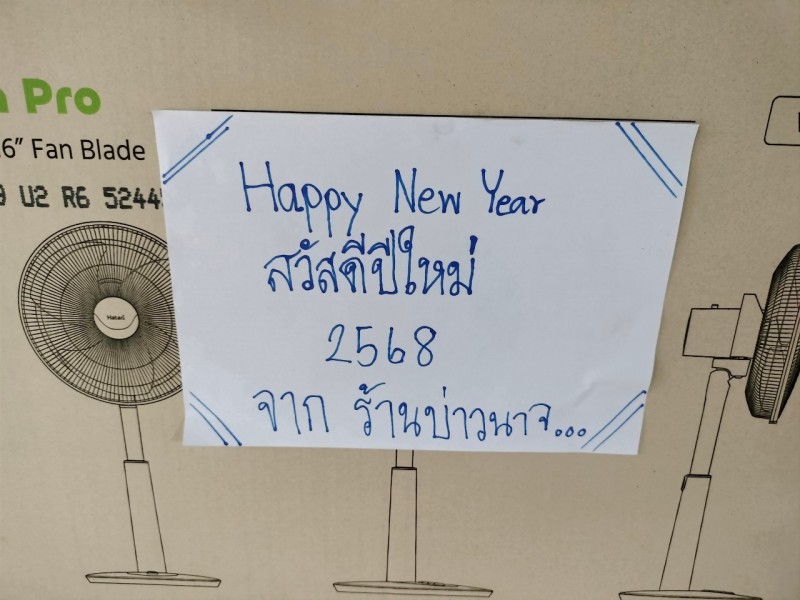 Pro
6" Fan Blade
U2 R6 5244
Hatari
Happy New Year
สวัสดีปีใหม่
2568
จาก ร้านบ่าวนาจ...